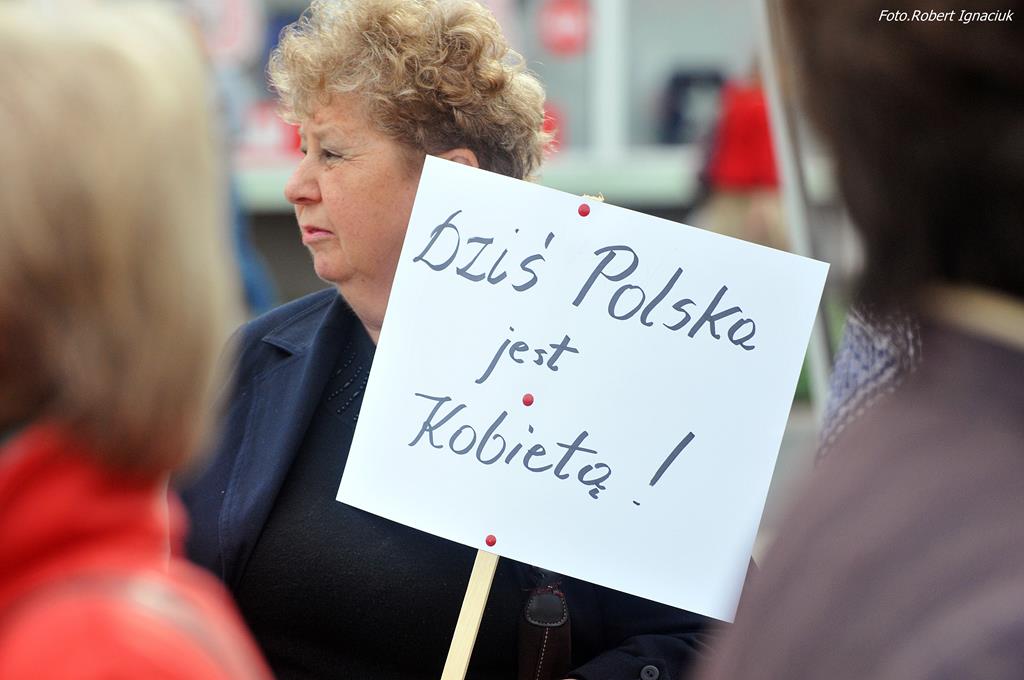 Foto.Robert Ignaciuk
Dziś Polska
jest
Kobietą!